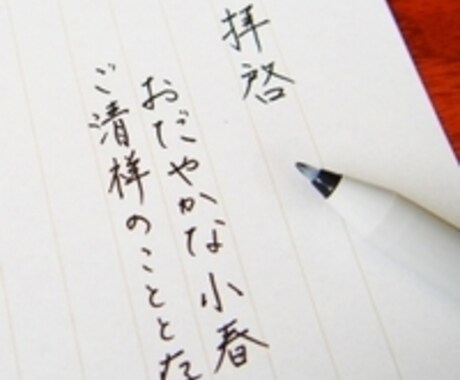 拝啓
おだやかな小春
ご清様のことと